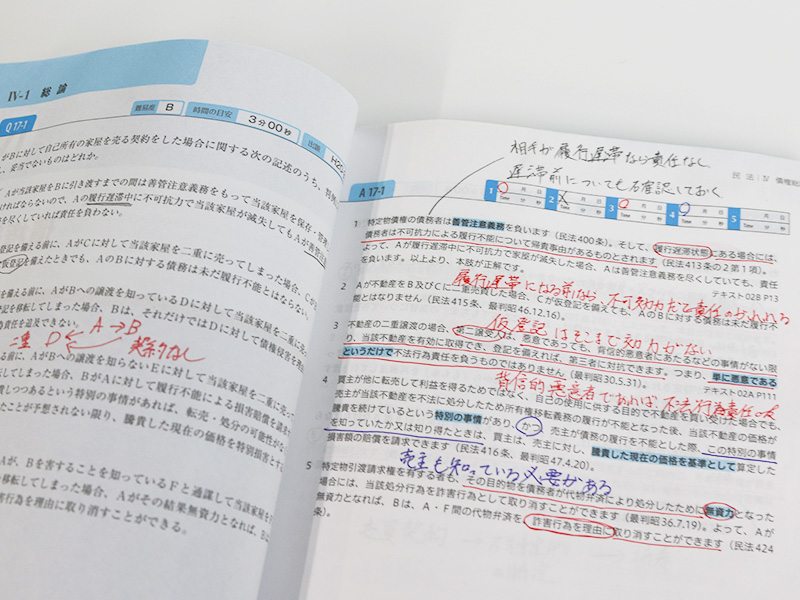 Ⅳ-1 総論
難易度 B 時間の目安 3分00秒 出題
Q 17-1
がBに対して自己所有の家屋を売る契約をした場合に関する次の記述のうち、
、妥当でないものはどれか。
Aが当該家屋をBに引き渡すまでの間は善管注意義務をもって当該家屋を保存・管理
ければならないので、Aの履行遅滞中に不可抗力で当該家屋が滅失してもAが善管注意
を尽くしていれば責任を負わない。
登記を備える前に、AがCに対して当該家屋を二重に売ってしまった場合、Cが
仮登記を備えたときでも、AのBに対する債務は未だ履行不能とはならない。
を備える前に、AがBへの譲渡を知っているDに対して当該家屋を二重に売
登記を移転してしまった場合、Bは、それだけではDに対して債権侵害を理
為責任を追及できない。
二重 D A→B
る前に、AがBへの譲渡を知らないEに対して当該家屋を二重に売って
してしまった場合、BがAに対して履行不能による損害賠償を請求す
しつつあるという特別の事情があれば、転売・処分の可能性が
たことが予想されない限り、騰貴した現在の価格を特別損害とす
Aが、Bを害することを知っているFと通謀して当該家屋を
移転してしまった場合、Aがその結果無資力となれば、Bは
害行為を理由に取り消すことができる。
相手が履行遅滞なら責任なし
遅滞前についても確認しておく
民法 Ⅳ 債権総
A 17-1
1 月 日 Time 分 秒 2 月 日 Time 分 秒 3 月 日 Time 分 秒 4 月 日 Time 分 秒 5 月 日 Time 分 秒
1 特定物債権の債務者は善管注意義務を負います（民法400条）。そして、履行遅滞状態にある場合には、
債務者は不可抗力による履行不能について帰責事由があるものとされます（民法413条の2第1項）。
よって、Aが履行遅滞中に不可抗力で家屋が滅失した場合、Aは善管注意義務を尽くしていても、責任
を負います。以上より、本肢が正解です。
テキスト02B P13
履行遅滞になる前なら、不可効力だと責任のがれる
2 Aが不動産をB及びCに二重売買した場合、Cが仮登記を備えても、AのBに対する債務は未だ履行不
能とはなりません（民法415条、最判昭46.12.16）。
仮登記はそこまで効力がない
3 不動産の二重譲渡の場合、第二譲受人は、悪意であっても、背信的悪意者にあたるなどの事情がない限
り、当該不動産を有効に取得でき、登記を備えれば、第三者に対抗できます。つまり、単に悪意である
というだけで不法行為責任を負うものではありません（最判昭30.5.31）。
テキスト02A P111
背信的悪意者であれば、不法行為責任
4 買主が他に転売して利益を得るためではなく、自己の使用に供する目的で不動産を買い受けた場合でも、
売主が当該不動産を不法に処分したため所有権移転義務の履行が不能となった後、当該不動産の価格が
騰貴を続けているという特別の事情があり、かつ、売主が債務の履行を不能とした際、この特別の事情
を知っていたか又は知り得たときは、買主は、売主に対し、騰貴した現在の価格を基準として算定した
損害額の賠償を請求できます（民法416条、最判昭47.4.20）。
売主も知っている必要がある
5 特定物引渡請求権を有する者も、その目的物を債務者が代物弁済により処分したために無資力となった
場合には、当該処分行為を詐害行為として取り消すことができます（最判昭36.7.19）。よって、Aが
無資力となれば、Bは、A・F間の代物弁済を、詐害行為を理由に取り消すことができます（民法424
条）。